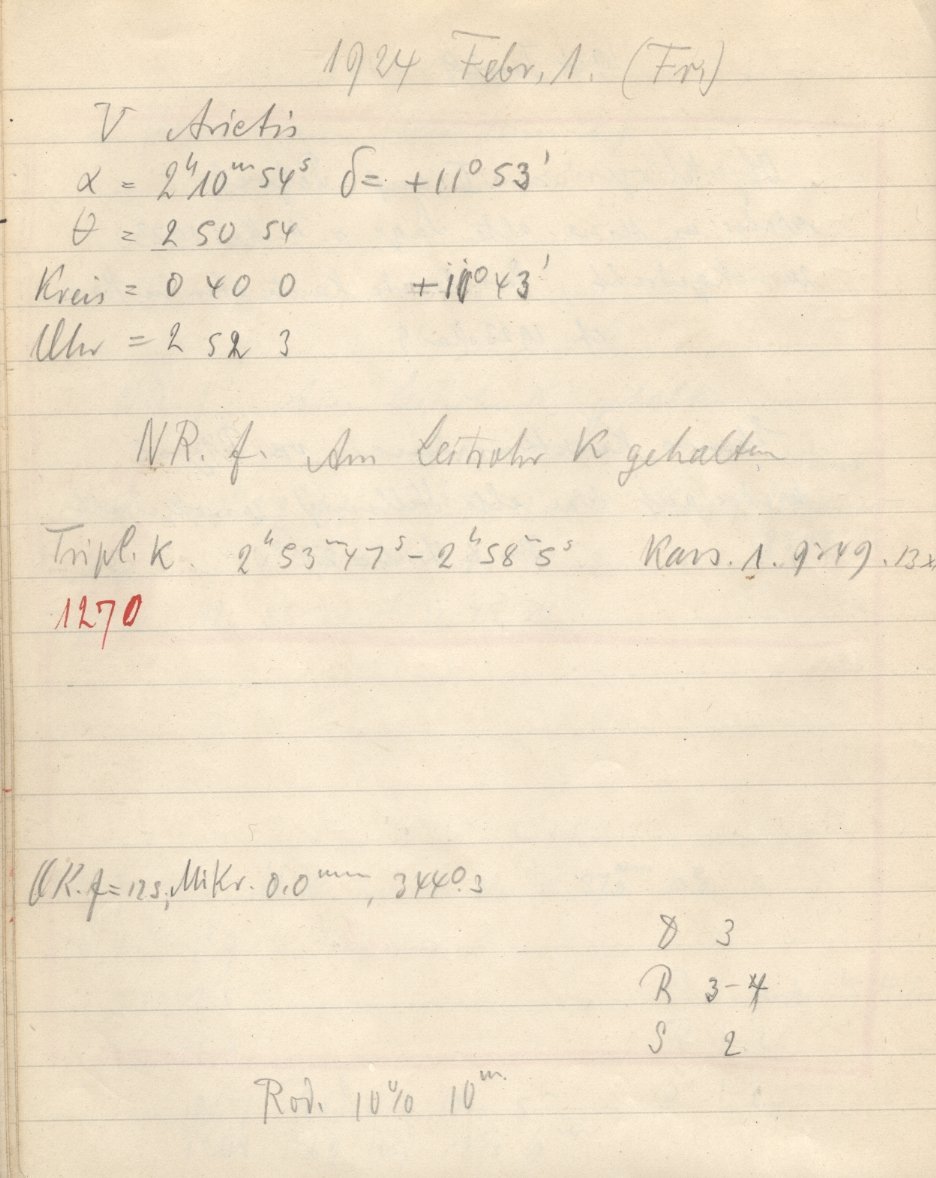 1924 Febr. 1. (Fr.)
V Arietis
α = 2ʰ10ᵐ54ˢ δ = +11⁰ 53'
θ = 2 50 54
Kreis = 0 40 0 +11⁰ 43'
Uhr = 2 52 3
NR. f. Am Leitrohr K gehalten
Tripl. K. 2ʰ 53ᵐ 47ˢ - 2ʰ 58ᵐ 5ˢ Kass. 1. 13x
1270
f = 123; Mikr. 0.0ᵐᵐ, 344⁰.3
D 3
R 3-4
S 2
Rod. 10% 10ᵐ